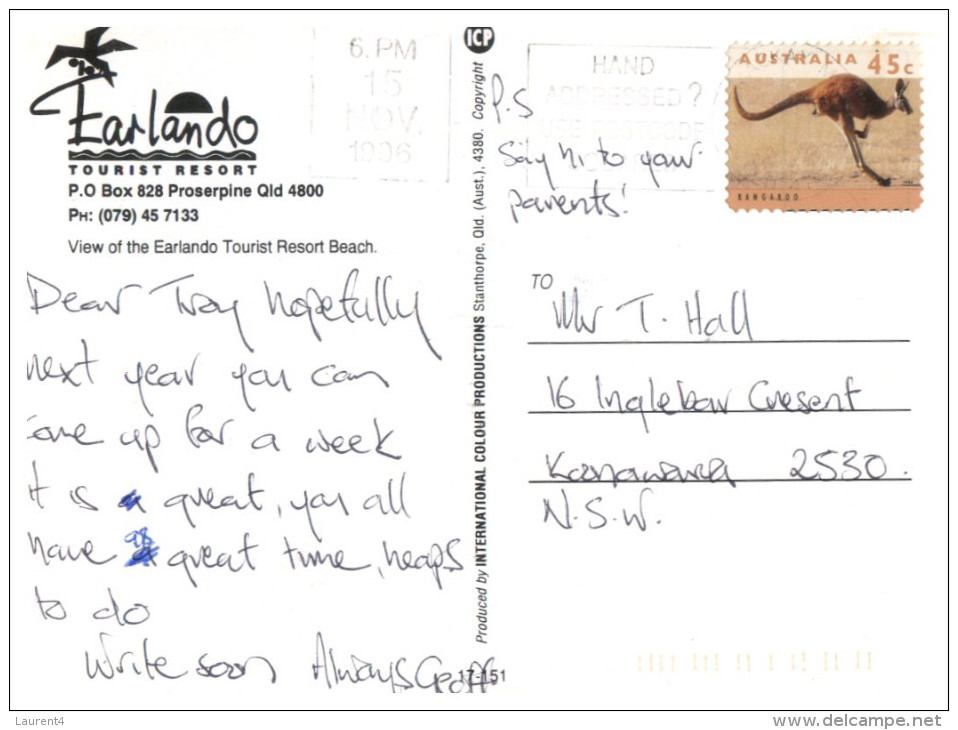 Earlando
TOURIST RESORT
P.O Box 828 Proserpine Qld 4800
PH: (079) 45 7133
View of the Earlando Tourist Resort Beach.
6. PM
15
NOV.
1996
Dear Troy hopefully
next year you can
ome up for a week
it is a great, you all
have a great time, heaps
to do
Write soon Always Geoff
Produced by INTERNATIONAL COLOUR PRODUCTIONS Stanthorpe, Qld. (Aust.), 4380. Copyright
ICP
17-151
P.S
Say hi to your
parents!
HAND
ADDRESSED?
USE POSTCODE
AUSTRALIA 45c
KANGAROO
TO
Mr T. Hall
16 Inglebar Cresent
Kanawara 2530.
N.S.W.
Laurent4
www.delcampe.net